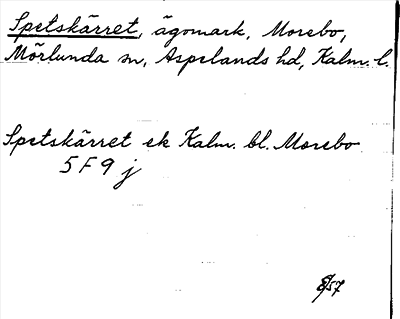 Spetskärret, ägomark, Morebo,
Mörlunda sn, Aspelands hd, Kalm. l.
Spetskärret ek Kalm. bl. Morebo
5 F 9 j